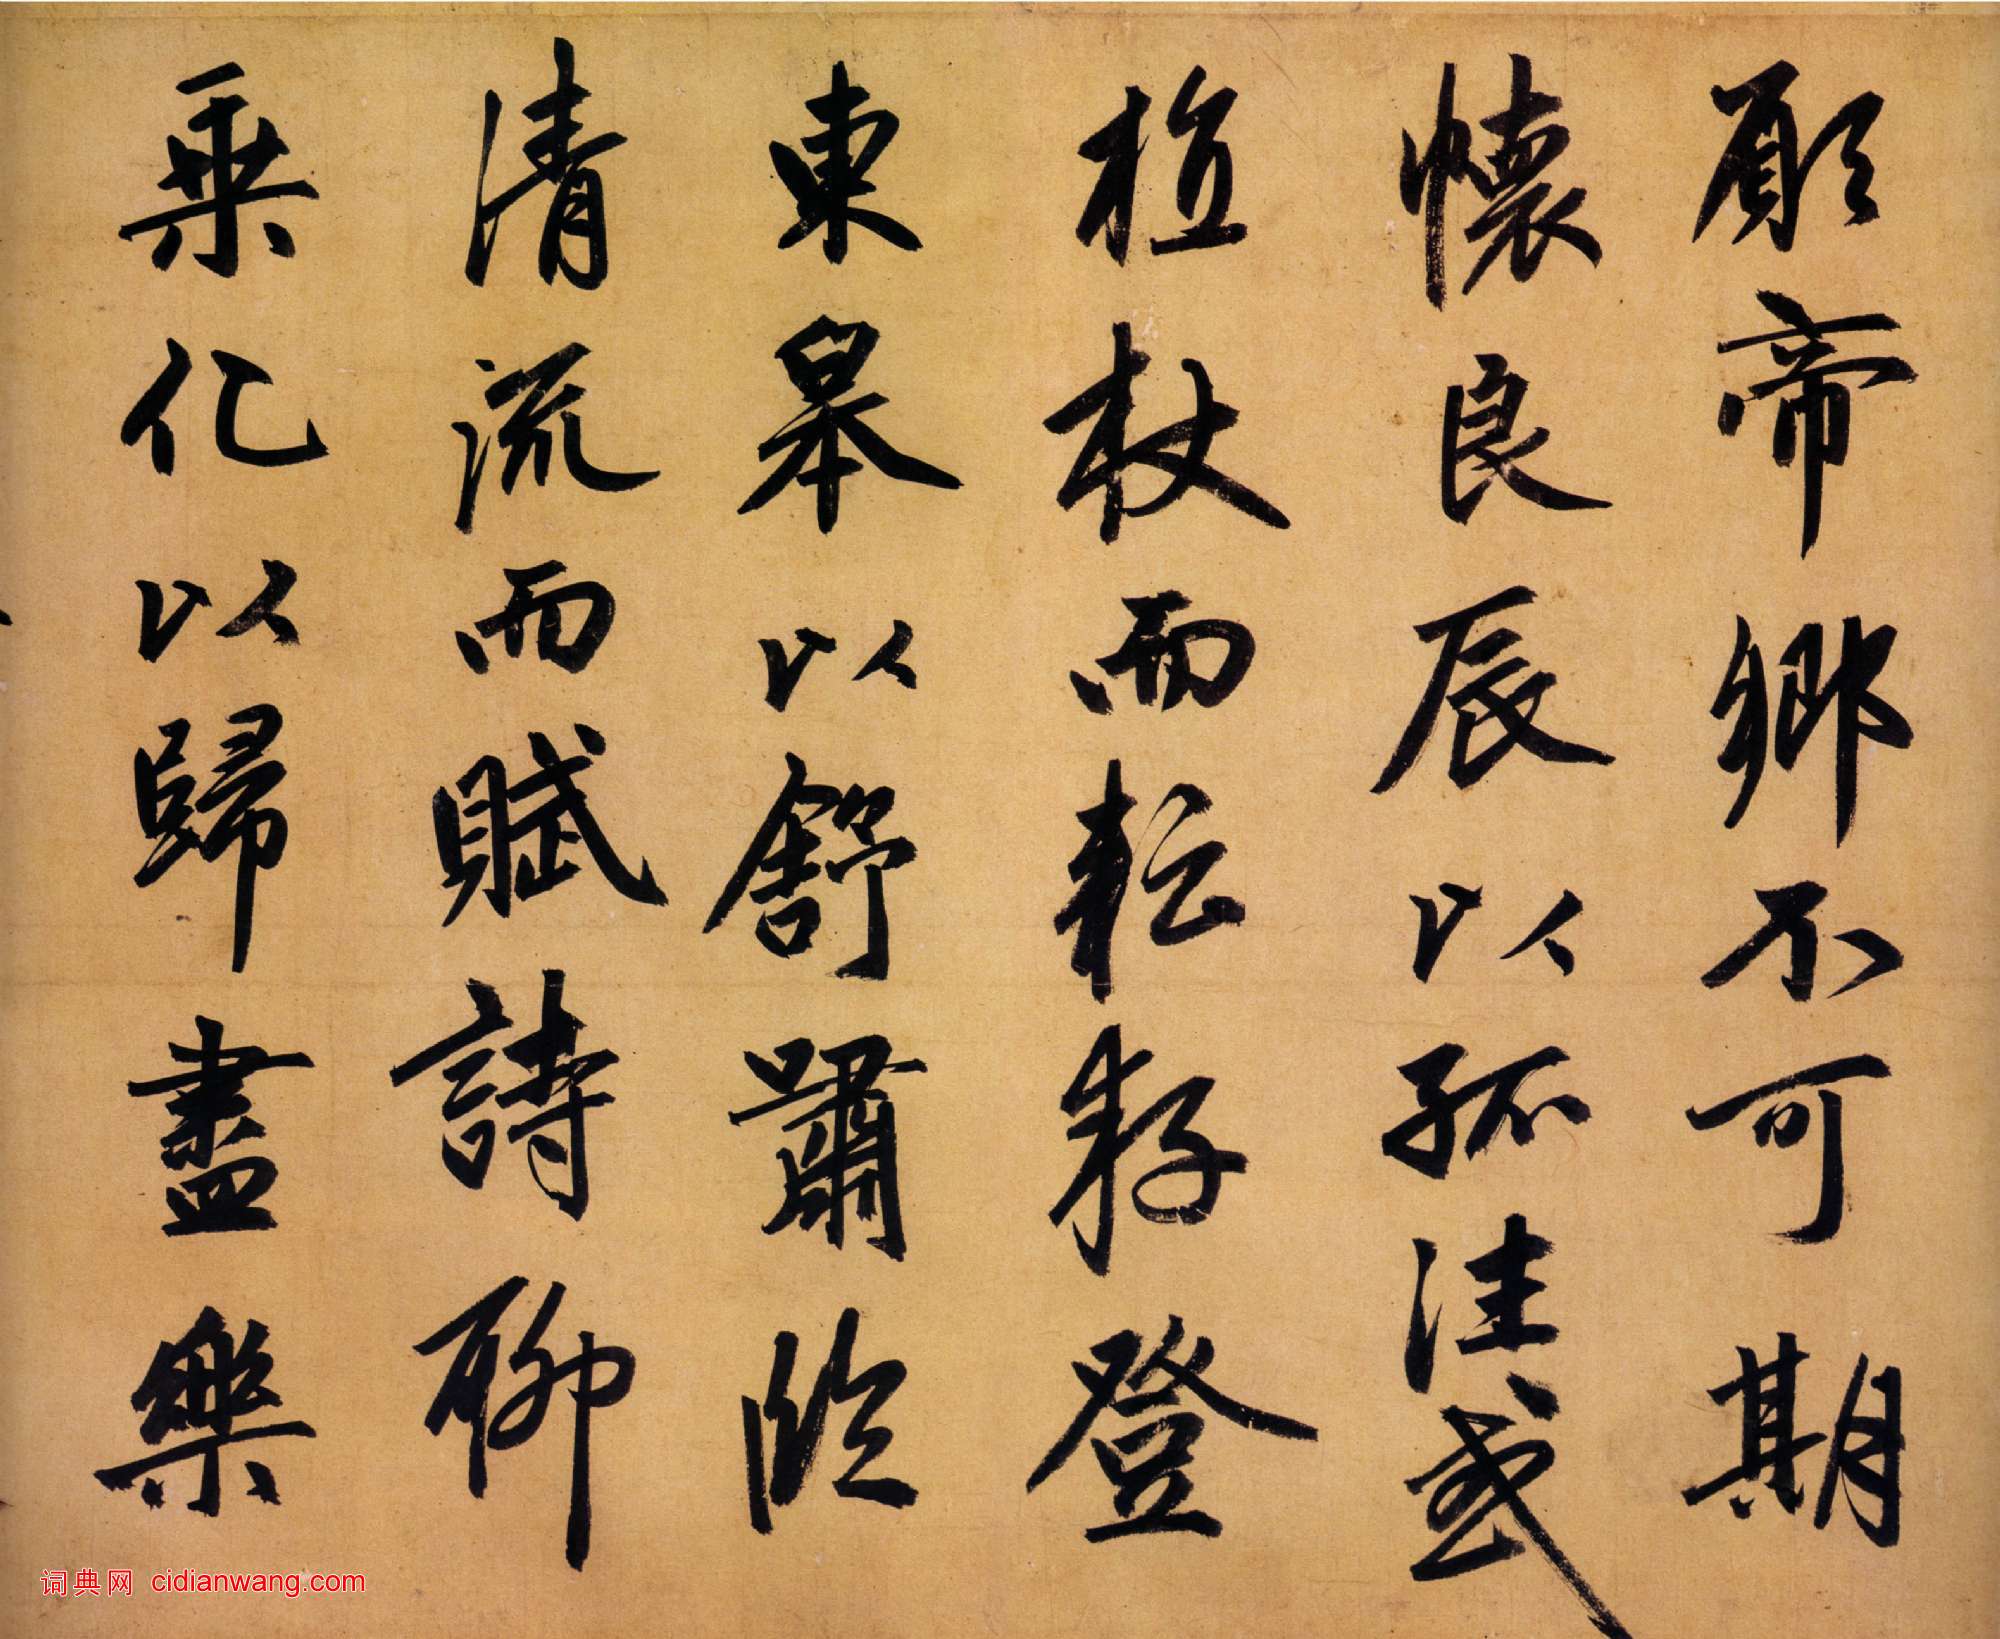 願帝鄉不可期
懷良辰以孤往或
植杖而耘耔登
東皋以舒嘯臨
清流而賦詩聊
乘化以歸盡樂
词典网 cidianwang.com